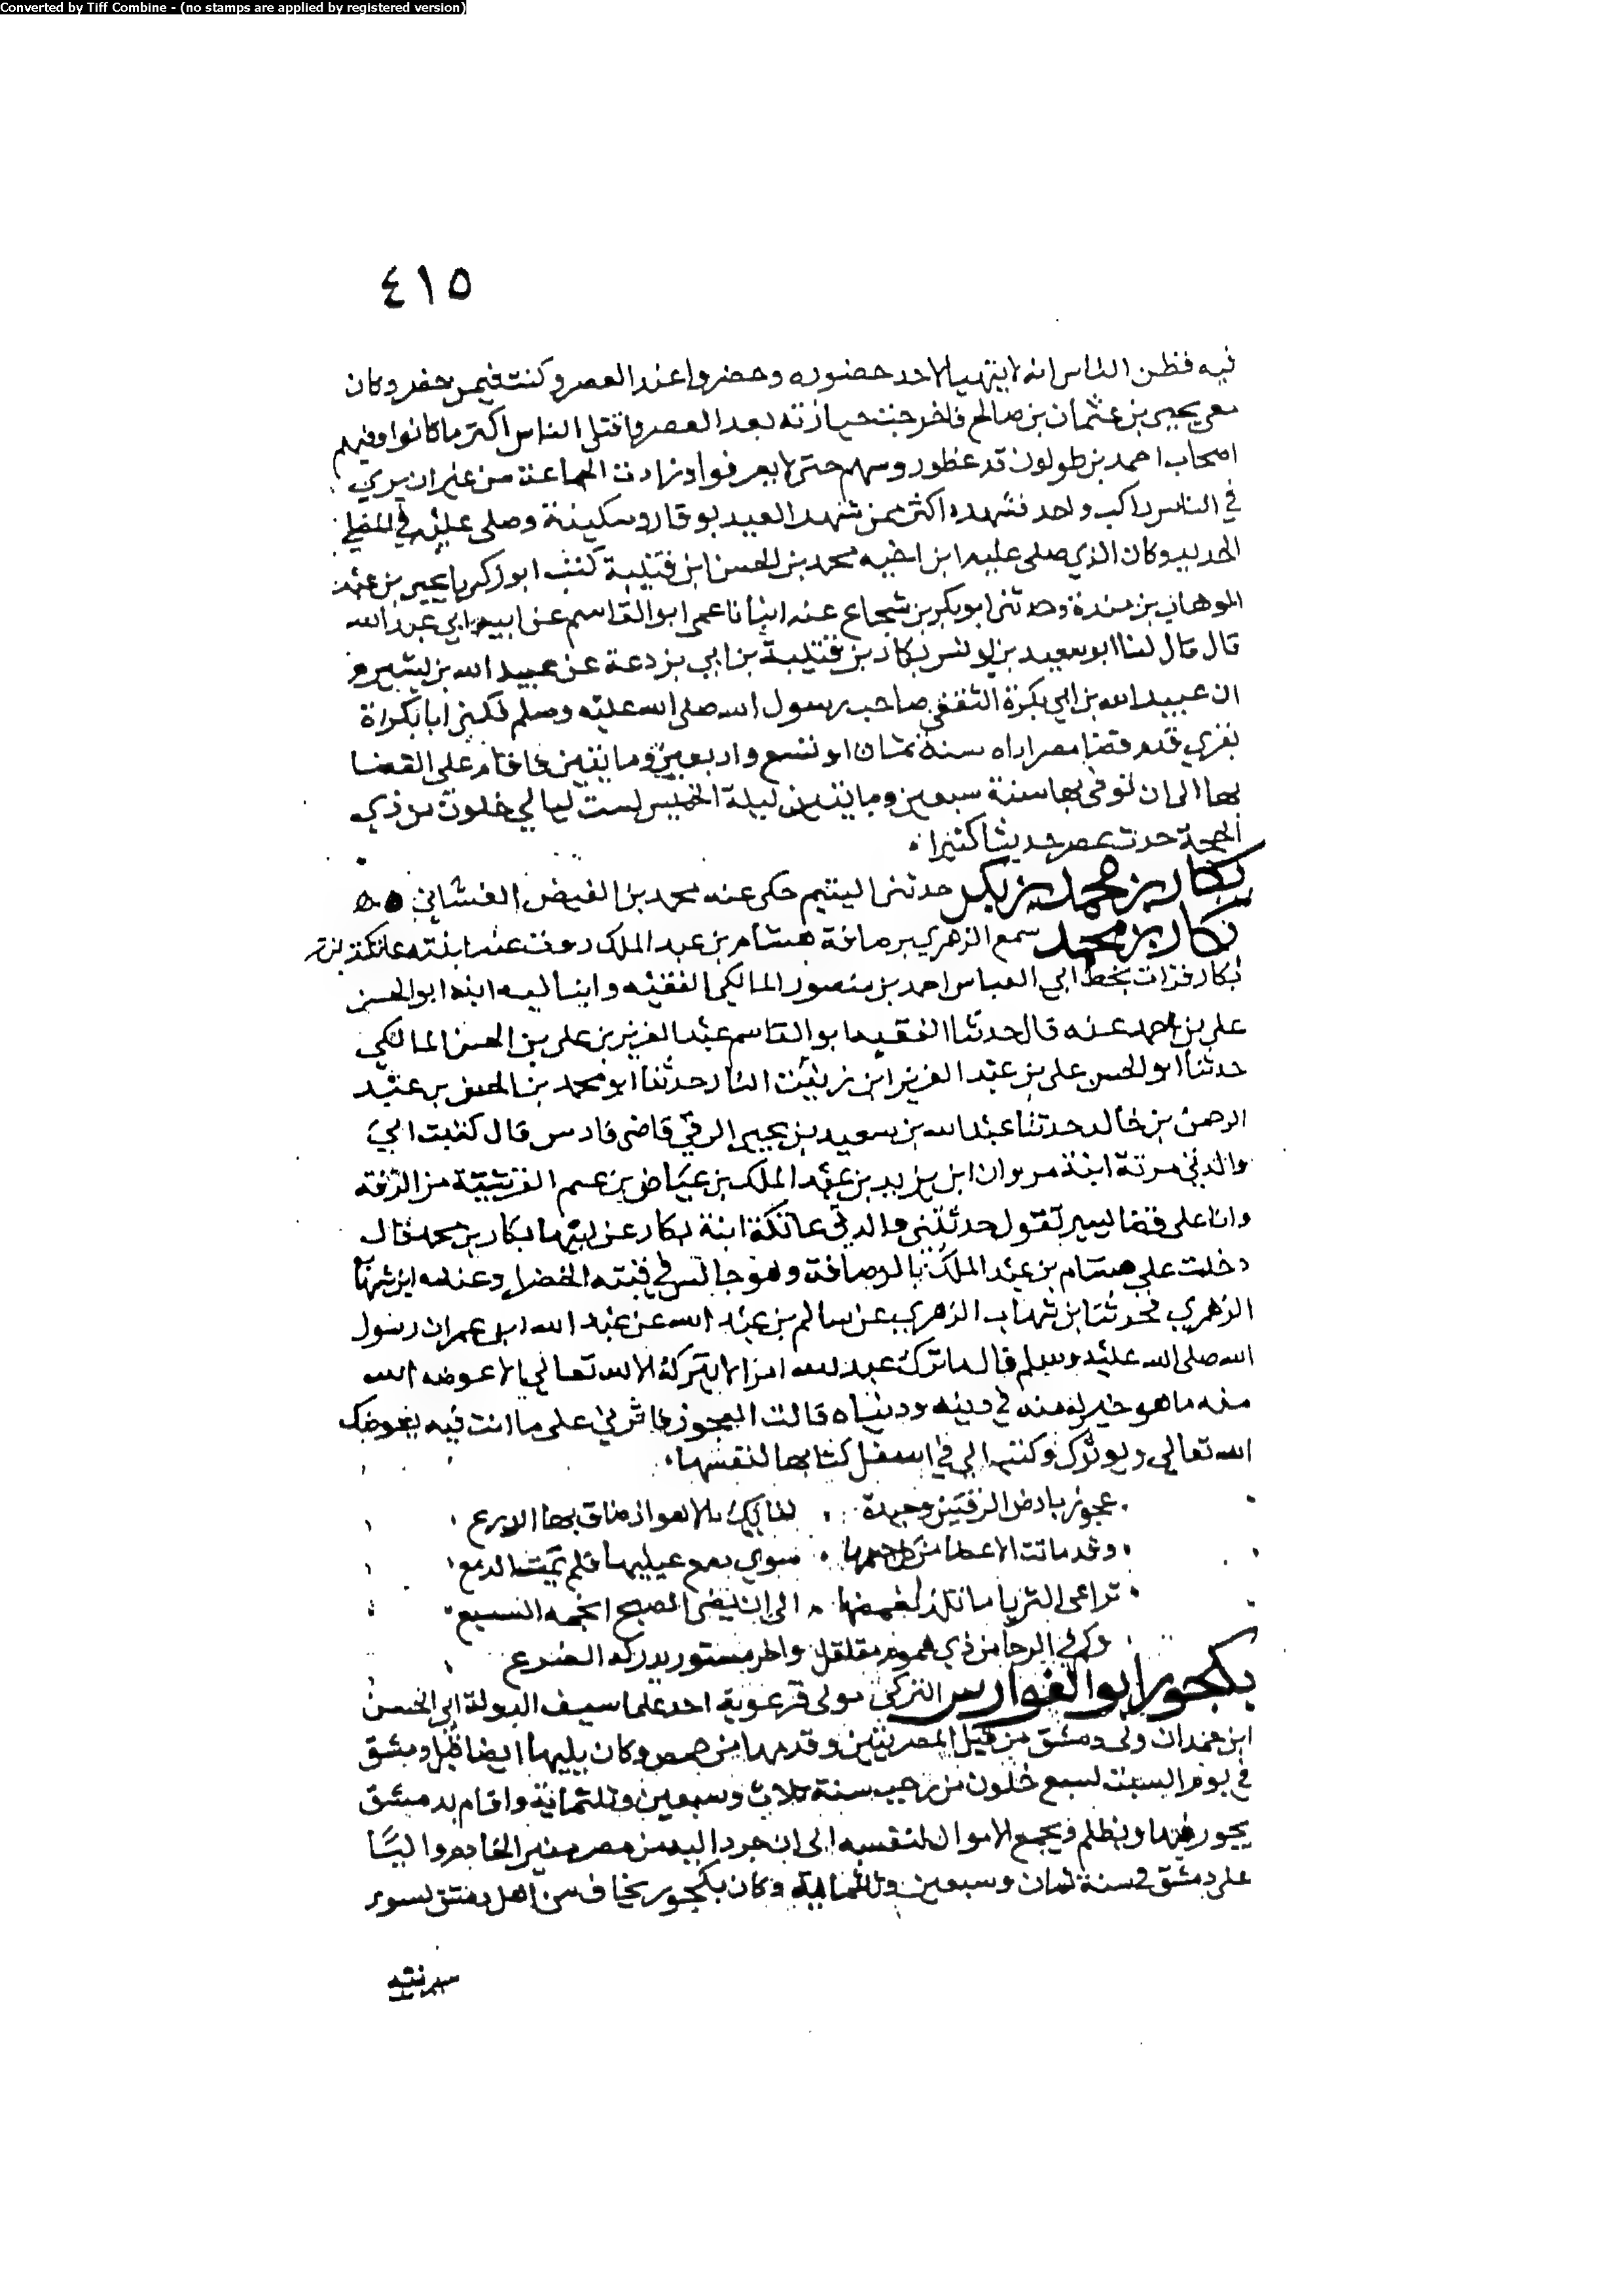 Converted by Tiff Combine - (no stamps are applied by registered version)
٤١٥
فيه فظن الناس انه لا يتهيا لاحد حضوره وحضروا عند العصر وكنت فيمن حضر وكان
معي يحيى بن عثمان بن صالح فاخرجت جنازته بعد العصر واقبل الناس اكثر ما كانوا وفيهم
اصحاب احمد بن طولون قد غطوا روسهم حتى لا يعرفوا وزادت الجماعة من غير ان يرى
في الناس راكب واحد فشهده اكثر ممن شهد العيد بوقار وسكينة وصلى عليه في المصلى
الجديد وكان الذي صلى عليه ابن اخيه محمد بن الحسن ابن قتيبة كتب ابو زكريا يحيى بن عبد
الوهاب بن مندة وحدثني ابو بكر بن شجاع عنه انبانا عمي ابو القاسم عن ابيه ابي عبد الله
قال قال لنا ابو سعيد بن يونس بكار بن قتيبة بن ابي بردعة عن عبيد الله بن بشير
ان عبيد الله بن ابي بكرة الثقفي صاحب رسول الله صلى الله عليه وسلم يكنى ابا بكرة
بصري قدم قضا مصر اراه سنة ثمان او تسع واربعين ومايتين فاقام على القضا
بها الى ان توفي بها سنة سبعين ومايتين ليلة الخميس لست ليالي خلون من ذي
الحجة حدث بمصر حديثا كثيرا
بكار بن محمد بن بكر حدثني اليتيم حكى عنه محمد بن الفيض الغساني
بكار بن محمد سمع الزهري برصافة هشام بن عبد الملك روت عنه ابنته عاتكة بنت
بكار قرات بخط ابي العباس احمد بن منصور المالكي الفقيه وانبانيه ابنه ابو الحسن
علي بن احمد عنه قال حدثنا الفقيه ابو القاسم عبد العزيز بن علي بن الحسن المالكي
حدثنا ابو الحسن علي بن عبد العزيز ابن حدثنا ابو محمد بن الحسن بن عبيد
الرحمن بن خالد حدثنا عبد الله بن سعيد بن يحيى الرقي قاضي فارس قال كتبت الي
والدتي مرتة ابنة مروان ابن يزيد بن عبد الملك بن عياض بن القرشية من الرقة
وانا على قضا تقول حدثتني والدتي عاتكة ابنة بكار عن ابيها بكار بن محمد قال
دخلت على هشام بن عبد الملك بالرصافة وهو جالس في قبته الخضرا وعنده ابن شهاب
الزهري فحدثنا ابن شهاب الزهري عن سالم بن عبد الله عن عبد الله ابن عمر ان رسول
الله صلى الله عليه وسلم قال ما ترك عبد لله امرا لا يتركه الا لله تعالى الا عوضه الله
منه ما هو خير له منه في دينه ودنياه قالت العجوز فاثرني على ما انت فيه يعوضك
الله تعالى ويوثرك وكتبت الي في اسفل كتابها لنفسها
عجوز بارض الرقتين وحيدة بالاهواز ضاق بها الدرع
وقد ماتت الاعضا من كل جسمها سوى دمع عينيها فلم يمت الدمع
تراعي الثريا ما تلذ لغمضها الى ان يضي الصبح انجمه السبع
وكم في الرجا من ذي هموم مقلقل واخر مستور يدركه الضرع
بكجور ابو الفوارس التركي مولى قرغوية احد غلمان سيف الدولة ابي الحسن
ابن حمدان ولي دمشق من قبل المصريين وقدمها من حمص وكان يليها ايضا دمشق
في يوم السبت لسبع خلون من رجب سنة ثلاث وسبعين وثلثماية واقام بدمشق
يجور فيها ويظلم ويجمع الاموال لنفسه الى ان جرد اليه من مصر منير الخادم واليا
على دمشق في سنة ثمان وسبعين وثلثماية وكان بكجور يخاف من اهل دمشق لسوء
سيرته